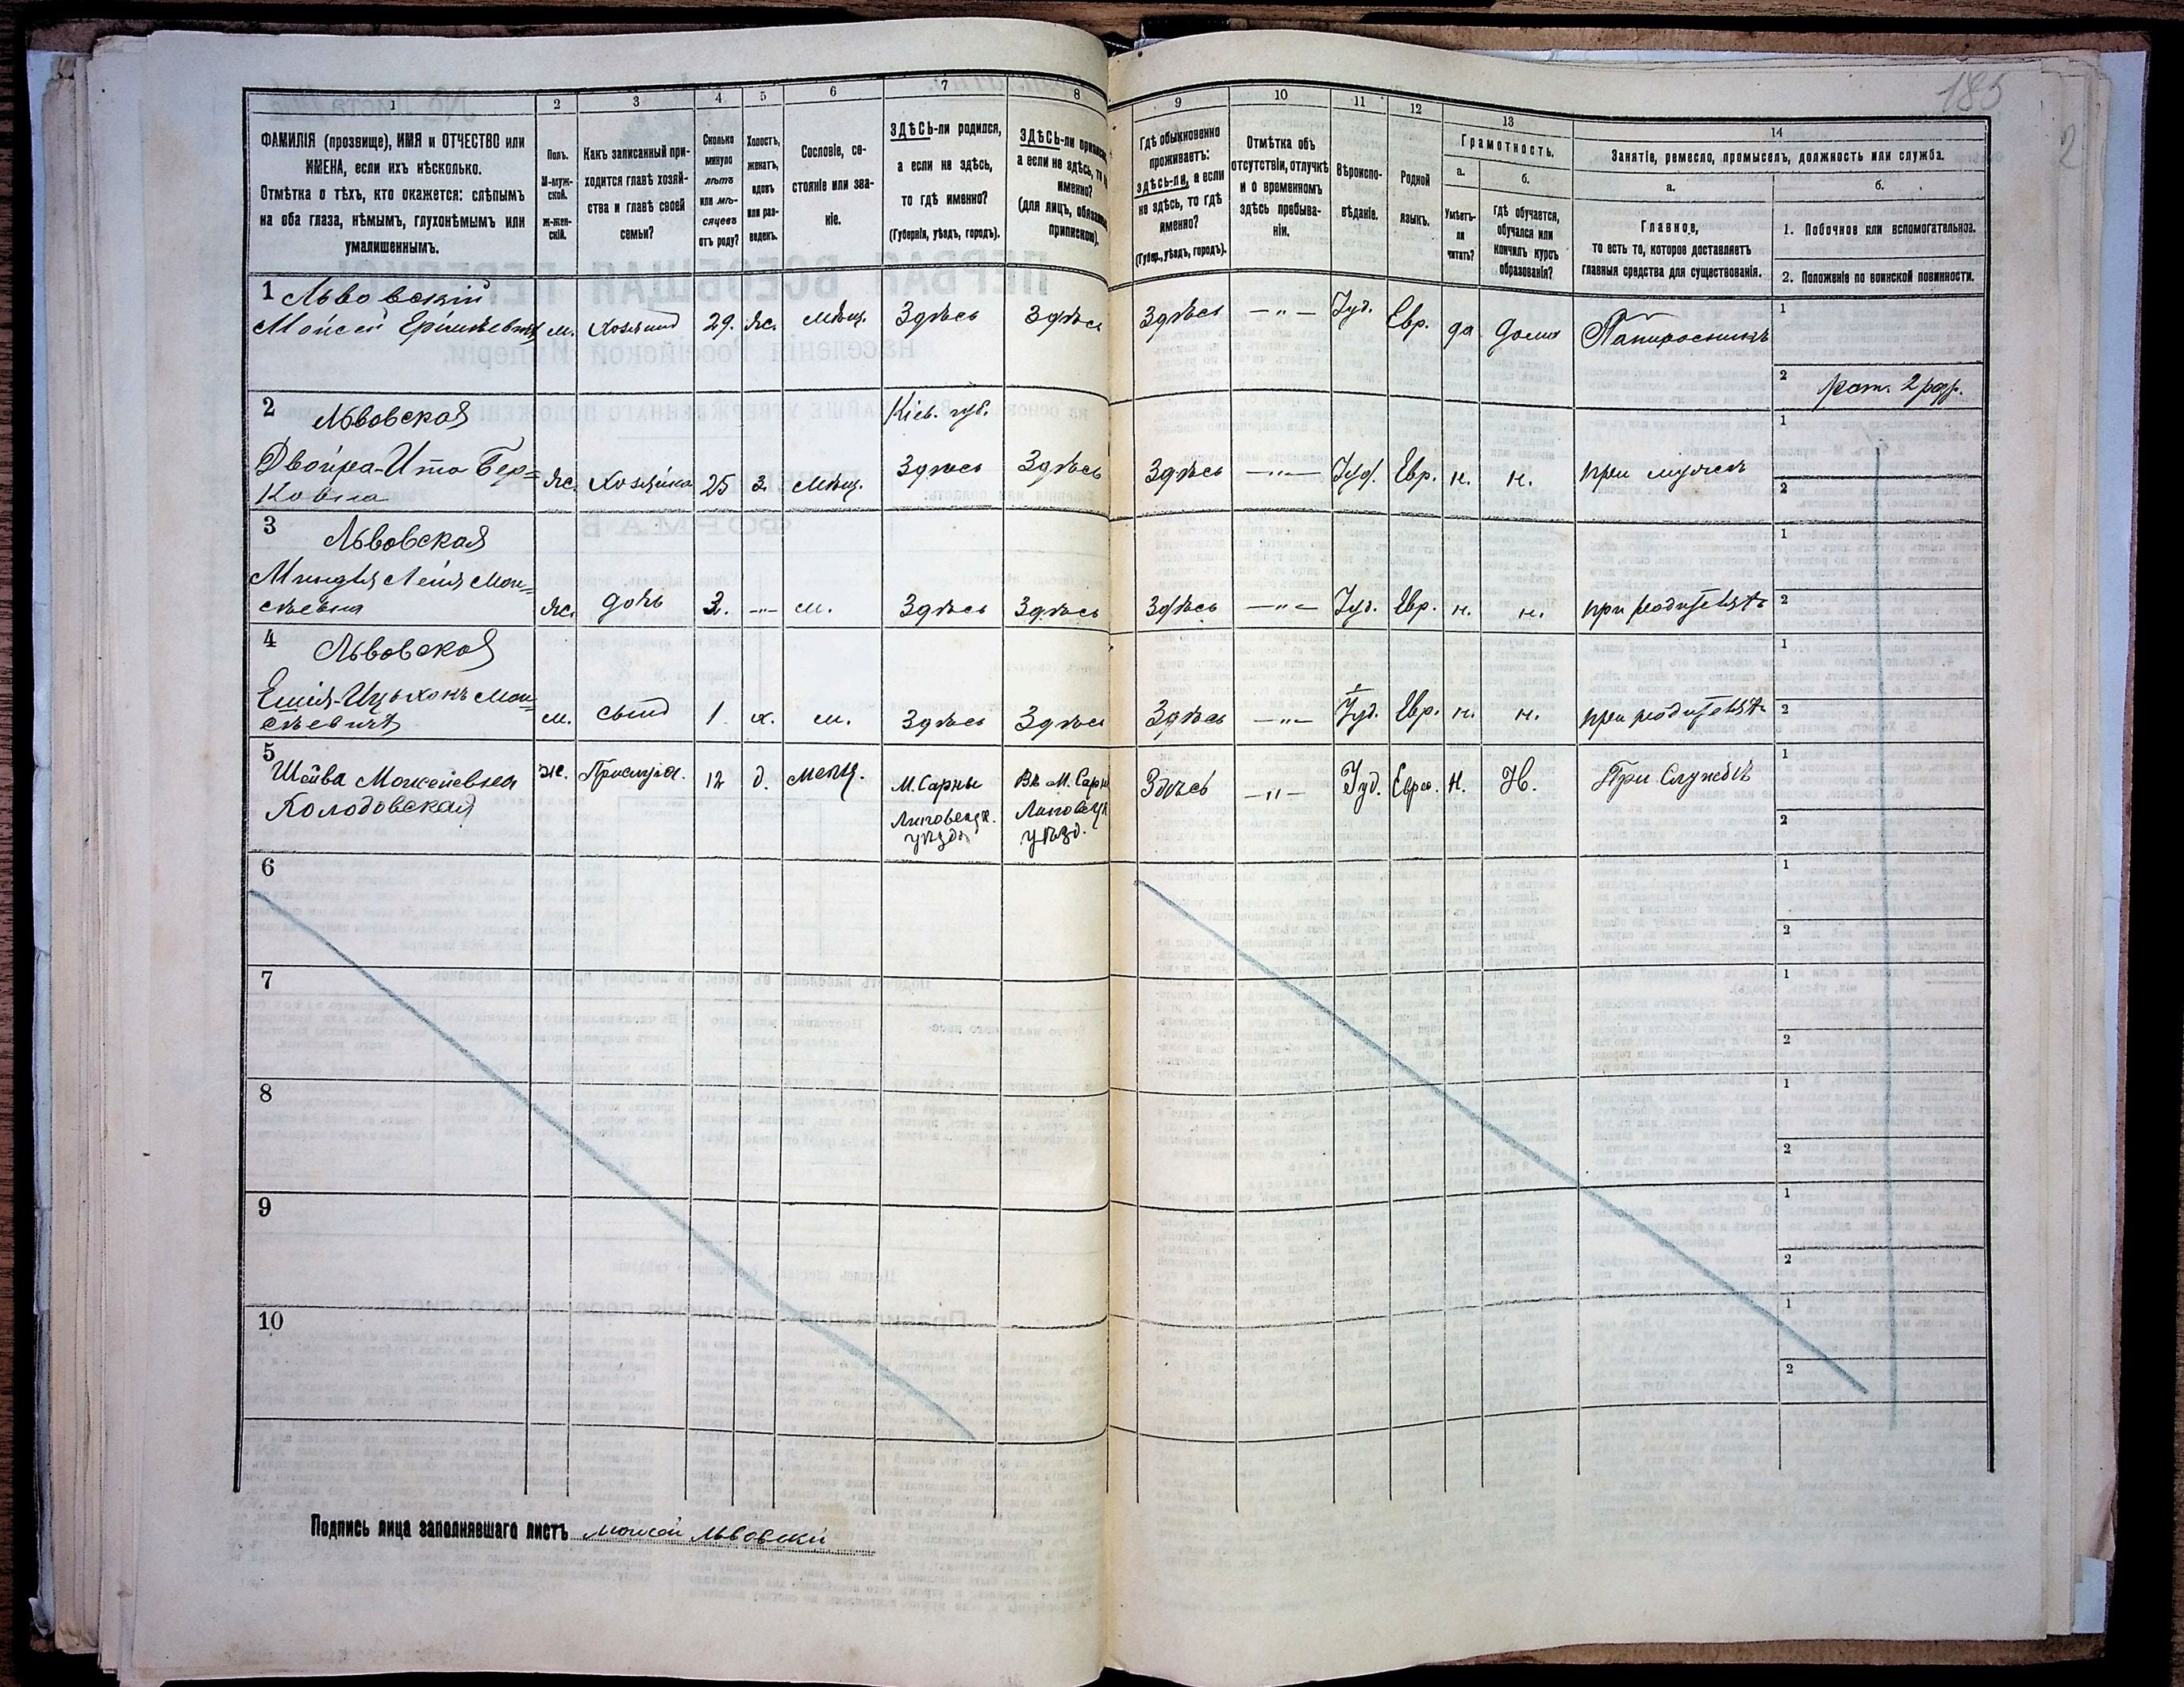 185
2
1 2 3 4 5 6 7 8 9 10 11 12 13 14
ФАМИЛІЯ (прозвище), ИМЯ и ОТЧЕСТВО или
ИМЕНА, если ихъ нѣсколько.
Отмѣтка о тѣхъ, кто окажется: слѣпымъ
на оба глаза, нѣмымъ, глухонѣмымъ или
умалишеннымъ.
Полъ.
М-муж-
ской.
ж-жен-
скій.
Какъ записанный при-
ходится главѣ хозяй-
ства и главѣ своей
семьи?
Сколько
минуло
лѣтъ
или мѣ-
сяцевъ
отъ роду?
Холостъ,
женатъ,
вдовъ
или раз-
веденъ.
Сословіе, со-
стояніе или зва-
ніе.
ЗДѢСЬ-ли родился,
а если не здѣсь,
то гдѣ именно?
(Губернія, уѣздъ, городъ).
ЗДѢСЬ-ли
а если не здѣсь, то
именно?
(для лицъ,
припискою).
Гдѣ обыкновенно
проживаетъ:
здѣсь-ли, а если
не здѣсь, то гдѣ
именно?
(Губер., уѣздъ, городъ).
Отмѣтка объ
отсутствіи, отлучкѣ
и о временномъ
здѣсь пребыва-
ніи.
Вѣроиспо-
вѣданіе.
Родной
языкъ.
Грамотность.
а. б.
Умѣетъ-
ли
читать?
Гдѣ обучается,
обучался или
кончилъ курсъ
образованія?
Занятіе, ремесло, промыселъ, должность или служба.
а. б.
Главное,
то есть то, которое доставляетъ
главныя средства для существованія.
1. Побочное или вспомогательное.
2. Положеніе по воинской повинности.
1 Львовскій
Моисей м. Хозяинъ 29. ж. мѣщ. Здѣсь Здѣсь Здѣсь — " — Іуд. Евр. да дома Папиросникъ 1
2 рат. 2 разр.
2 Львовская Кіев. губ. 1
Двойра-Ита Бер=
ковна ж. Хозяйка 25 з. мѣщ. Здѣсь Здѣсь Здѣсь — " — Іуд. Евр. н. н. при мужѣ 2
3 Львовская 1
Лея Мои=
сѣевна ж. дочь 2. — " — м. Здѣсь Здѣсь Здѣсь — " — Іуд. Евр. н. н. при родителяхъ 2
4 Львовская 1
Мои=
сѣевичъ м. сынъ 1 х. м. Здѣсь Здѣсь Здѣсь — " — Іуд. Евр. н. н. при родителяхъ 2
5
Шейва
Колодовская ж. Прислуга. 12 д. мещ. М. Сарны Въ М. Сарн Здѣсь — " — Іуд. Евре. Н. Н. При Службѣ 1
Липовецк. Липовецк 2
уѣзда уѣзд.
6 1
2
7 1
2
8 1
2
9 1
2
10 1
2
Подпись лица заполнявшаго листъ моисей львовски